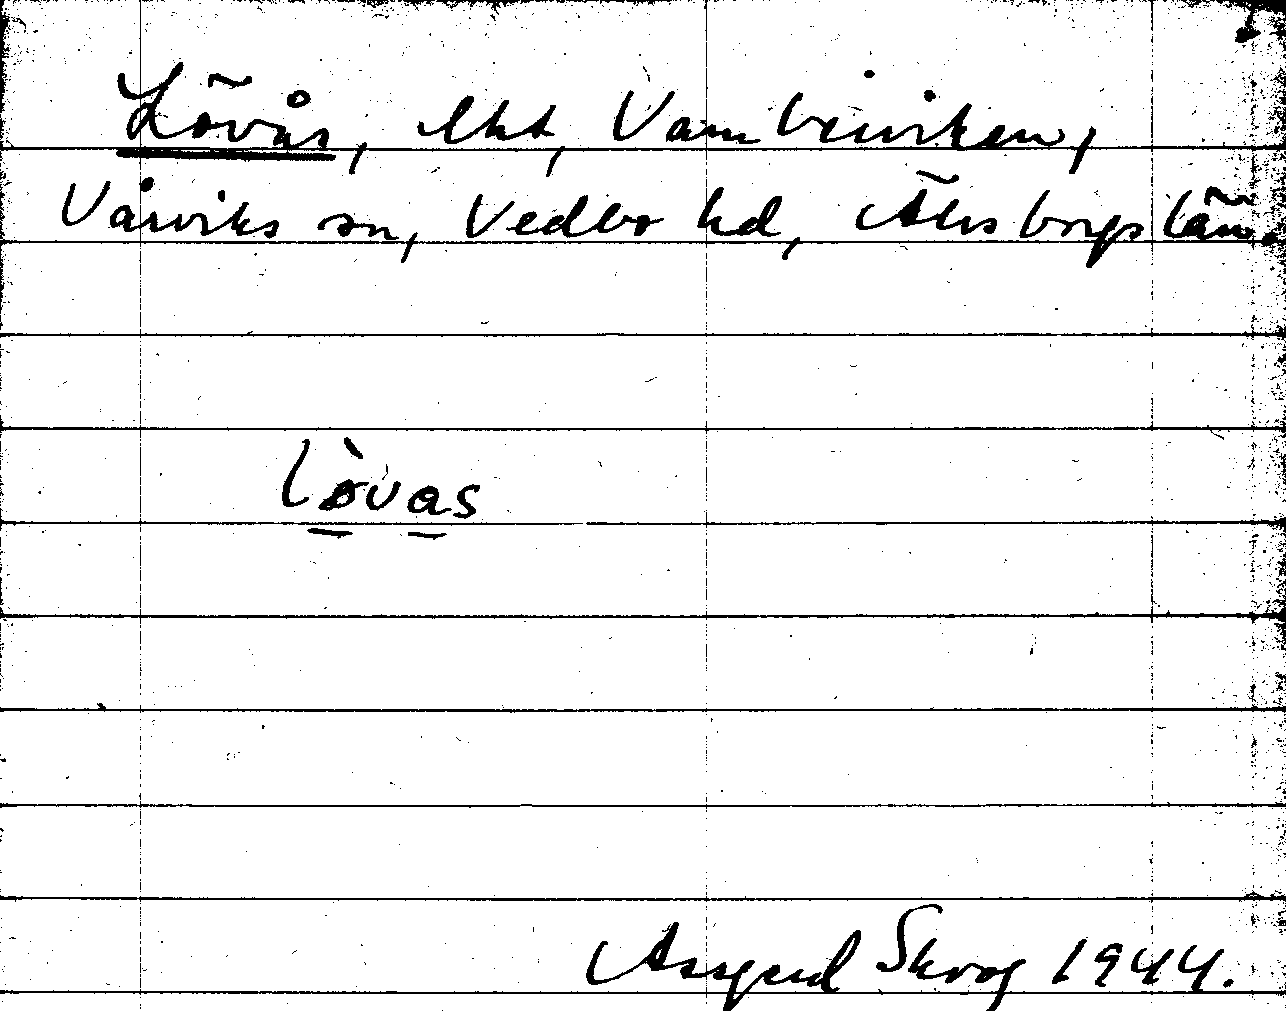 Lövås, lht, Vambeviken,
Vårviks sn, Vedbo hd, Älvsborgs län.
lòvas
Assgerd Skog 1944.